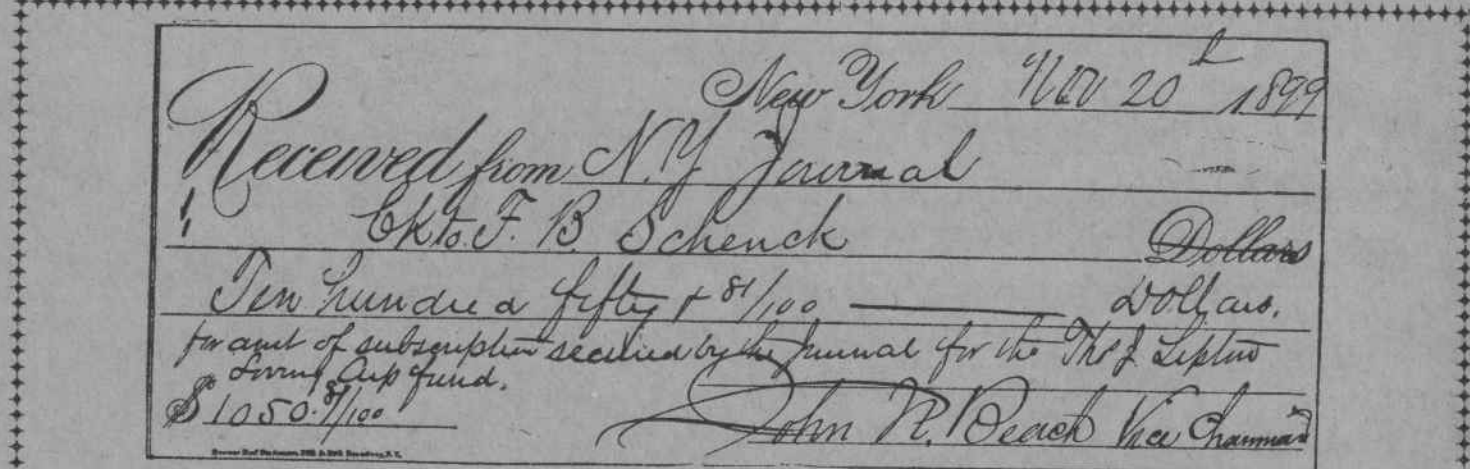 New York Nov 20th 1899
Received from N.Y Journal
Ck to F. B. Schenck Dollars
Ten hundred fifty + 81/100 Dollars.
for amt of subscription secured by the Journal for the Thos J. Lipton
Loving Cup fund.
$1050.81/100
John N. Beach Vice Chairman